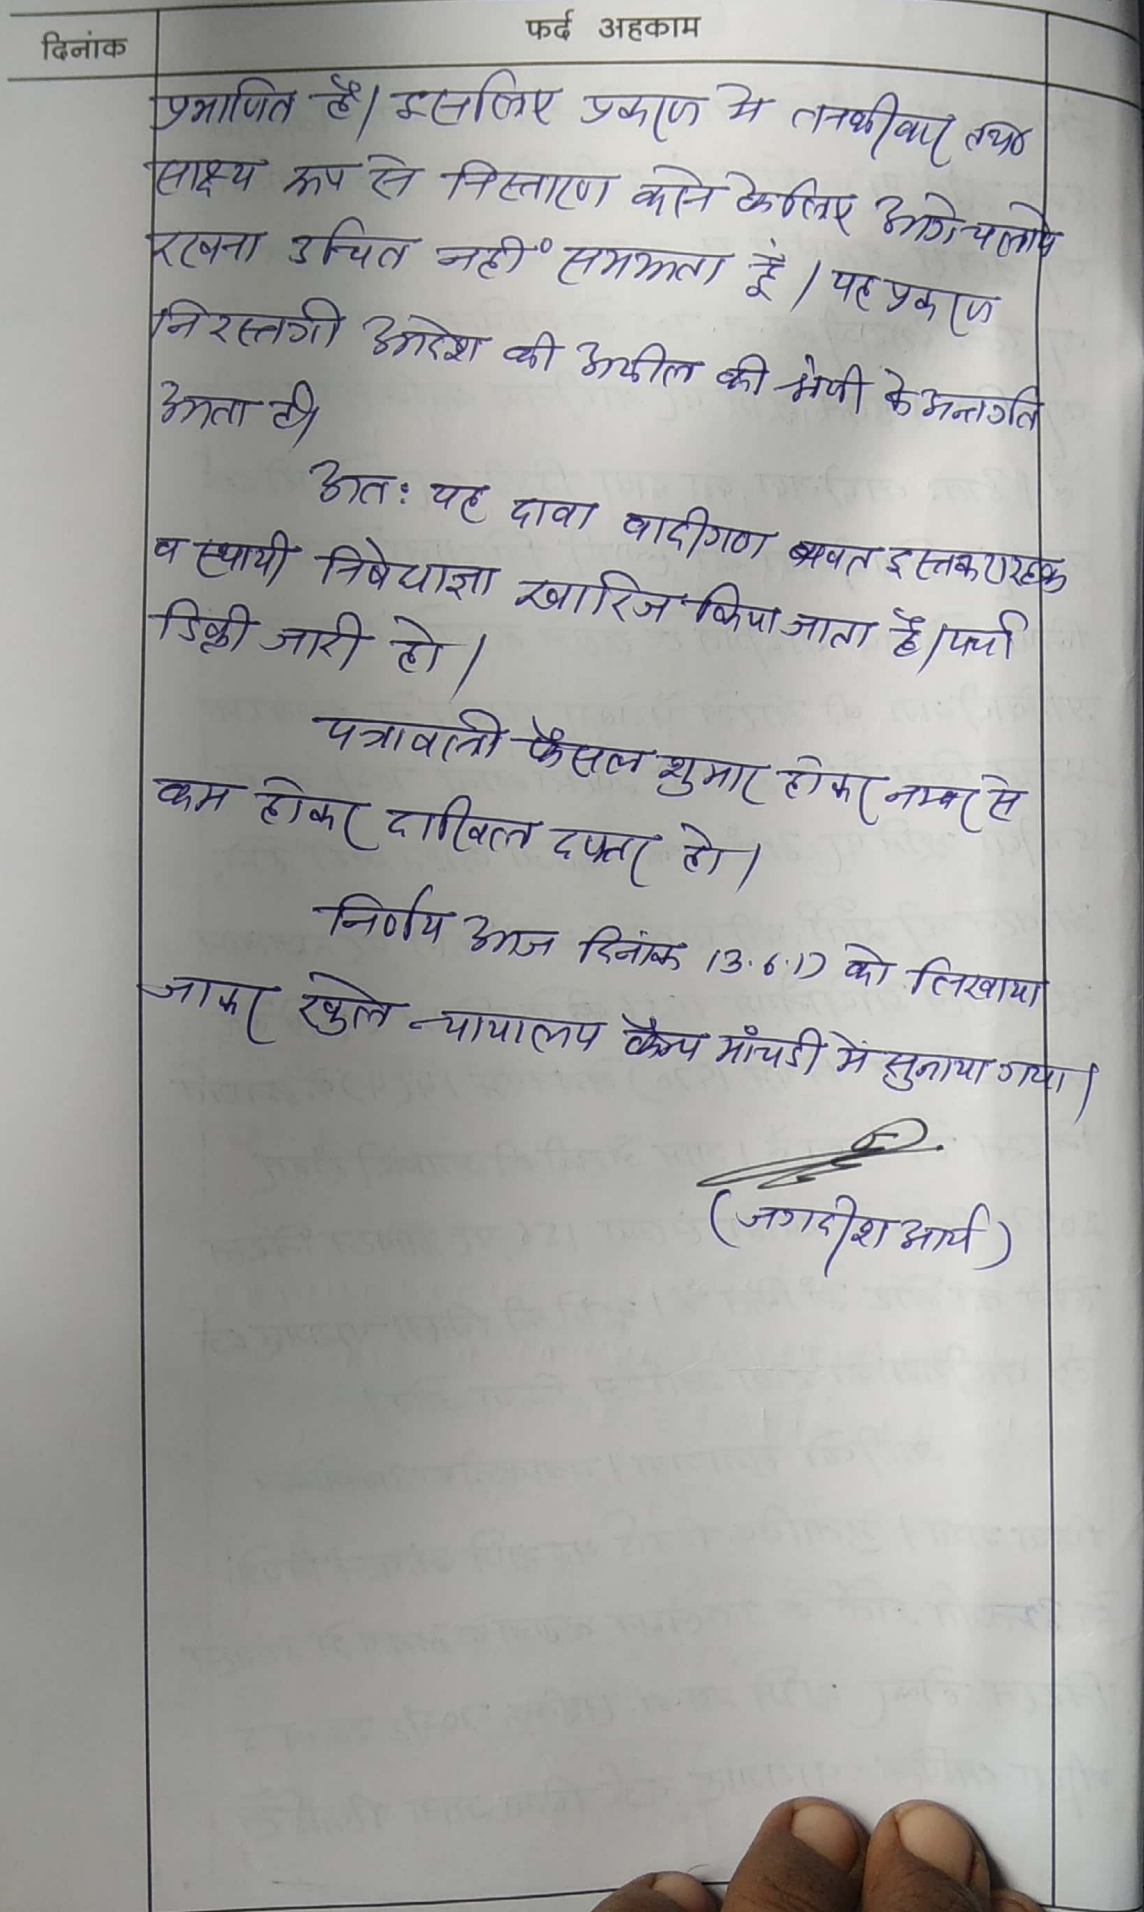 फर्द अहकाम
दिनांक
प्रमाणित है। इसलिए प्रकरण मे तनकीवार तथा
साक्ष्य रूप से निस्तारण करने के लिए आगे चलाये
रखना उचित नहीं समझता हूँ। यह प्रकरण
निरस्तगी आदेश की अपील की श्रेणी के अन्तर्गत
आता है।
अतः यह दावा वादीगण बाबत इस्तकरारहक
व स्थायी निषेधाज्ञा खारिज किया जाता है। पर्चा
डिक्री जारी हो।
पत्रावली फैसल शुमार होकर नम्बर से
कम होकर दाखिल दफ्तर हो।
निर्णय आज दिनांक 13.6.17 को लिखाया
जाकर खुले न्यायालय कैम्प माँचडी में सुनाया गया।
(जगदीश आर्य)